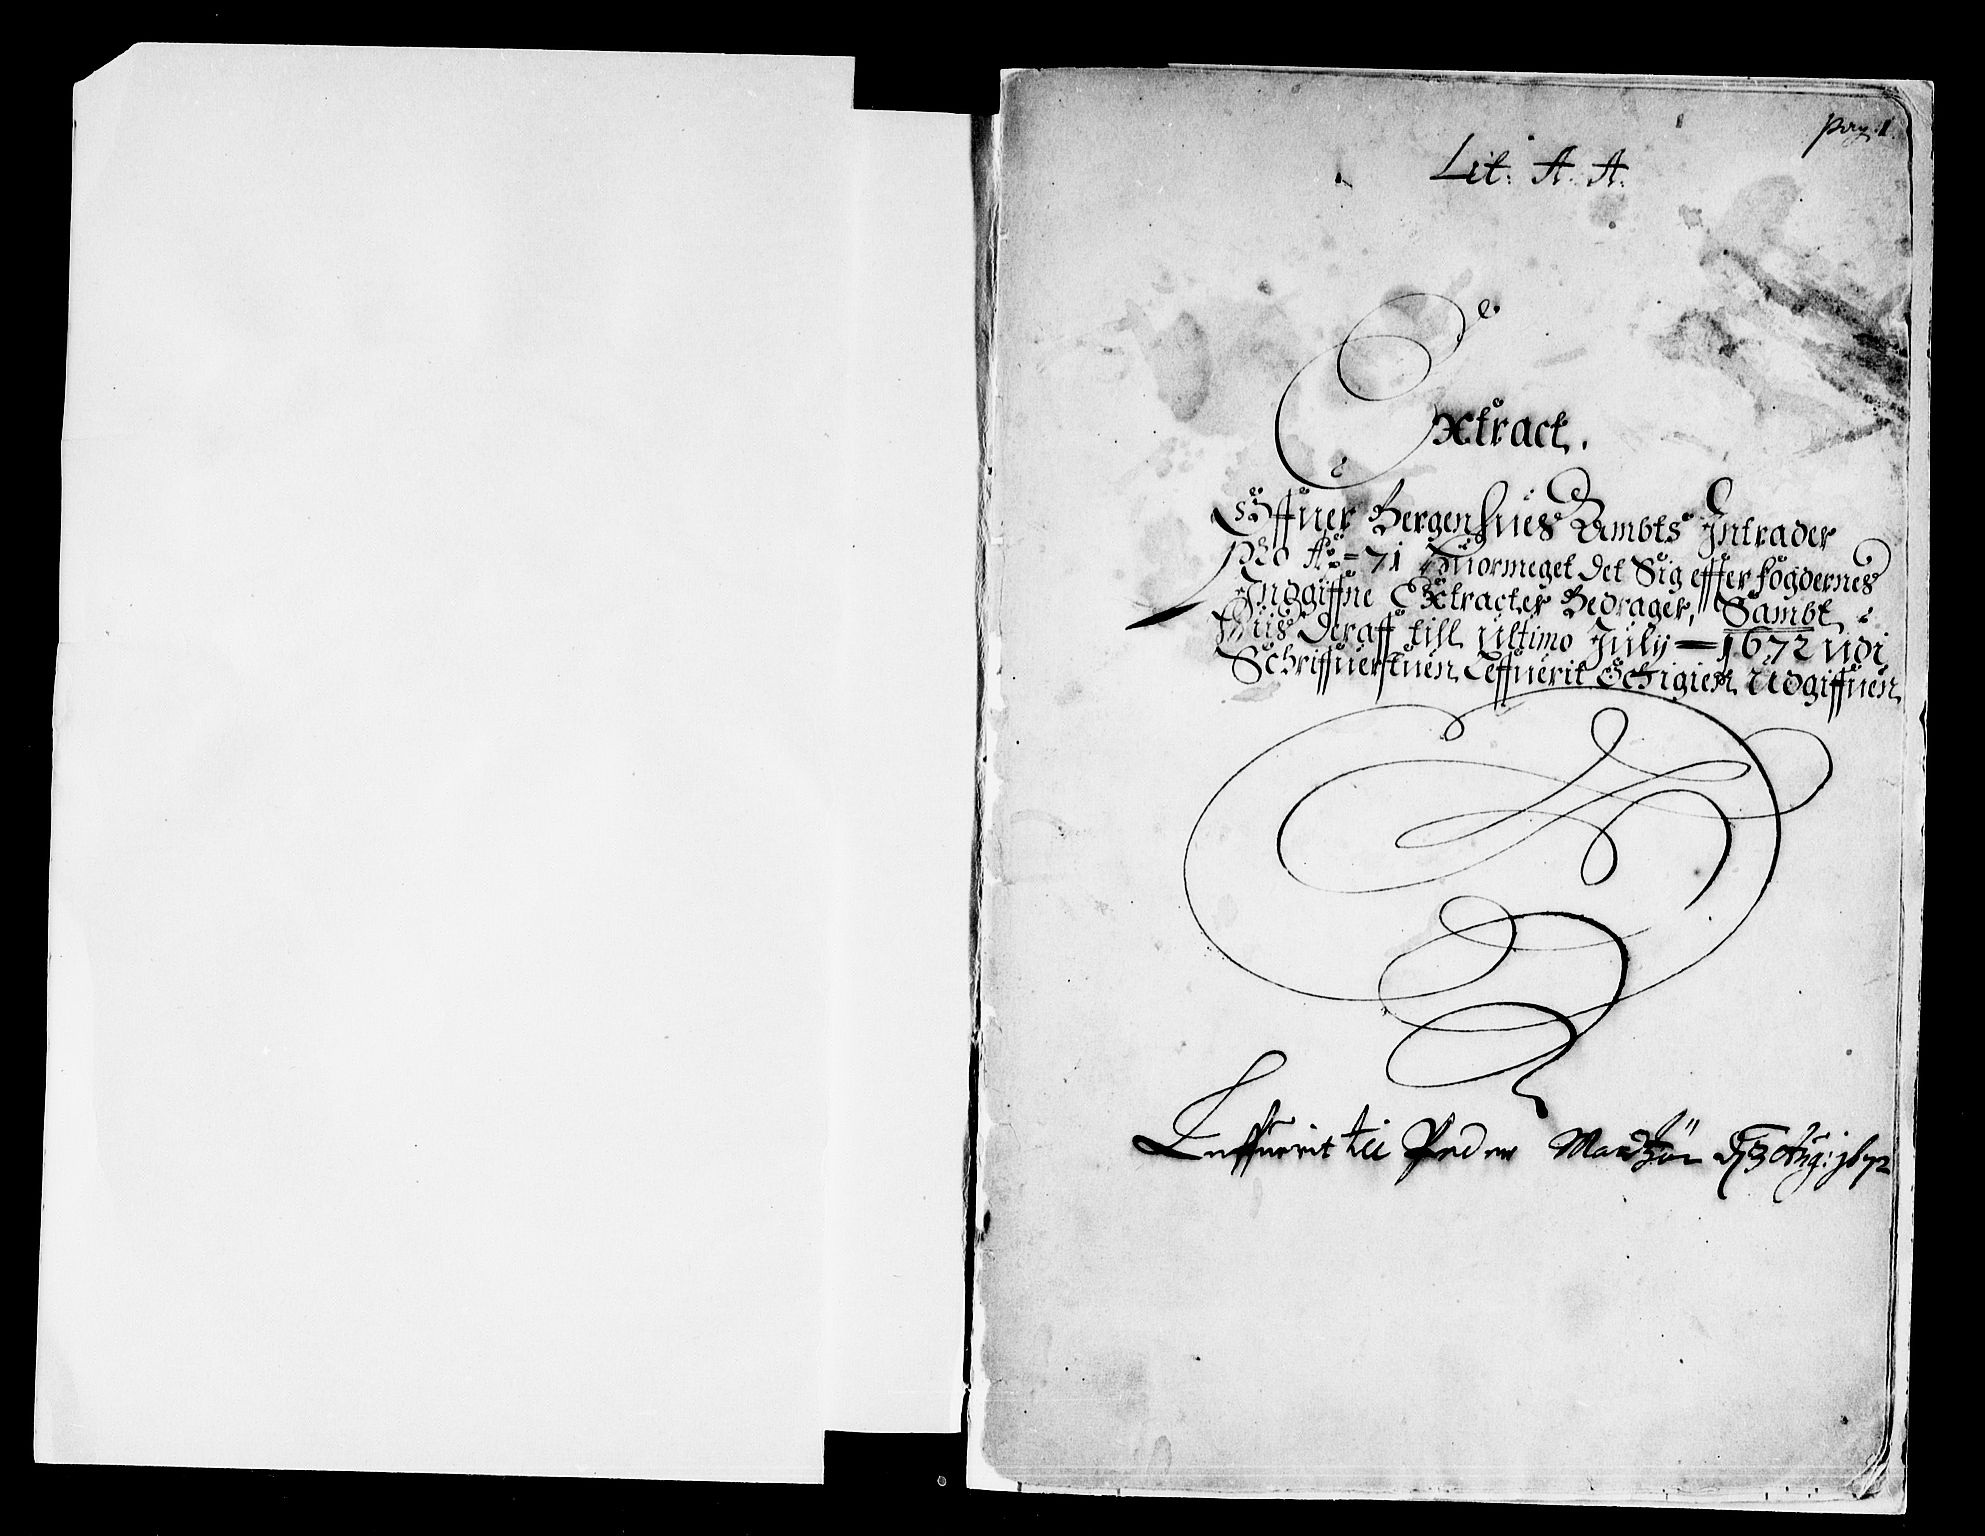 Pag: 1.
Lit: A. A.
Extract.
Offuer Bergenhues Ambts Intrader
Pro Ao = 71 Huormeget det Sig effter fogdernes
Indgiffne Extracter Bedrager, Sambt
Huis deraff till Ultimo July — 1672 udi
Schriffuerstuen Leffuerit Och igien Udgiffuen
Leffuerit til Peder 3 Aug: 1672